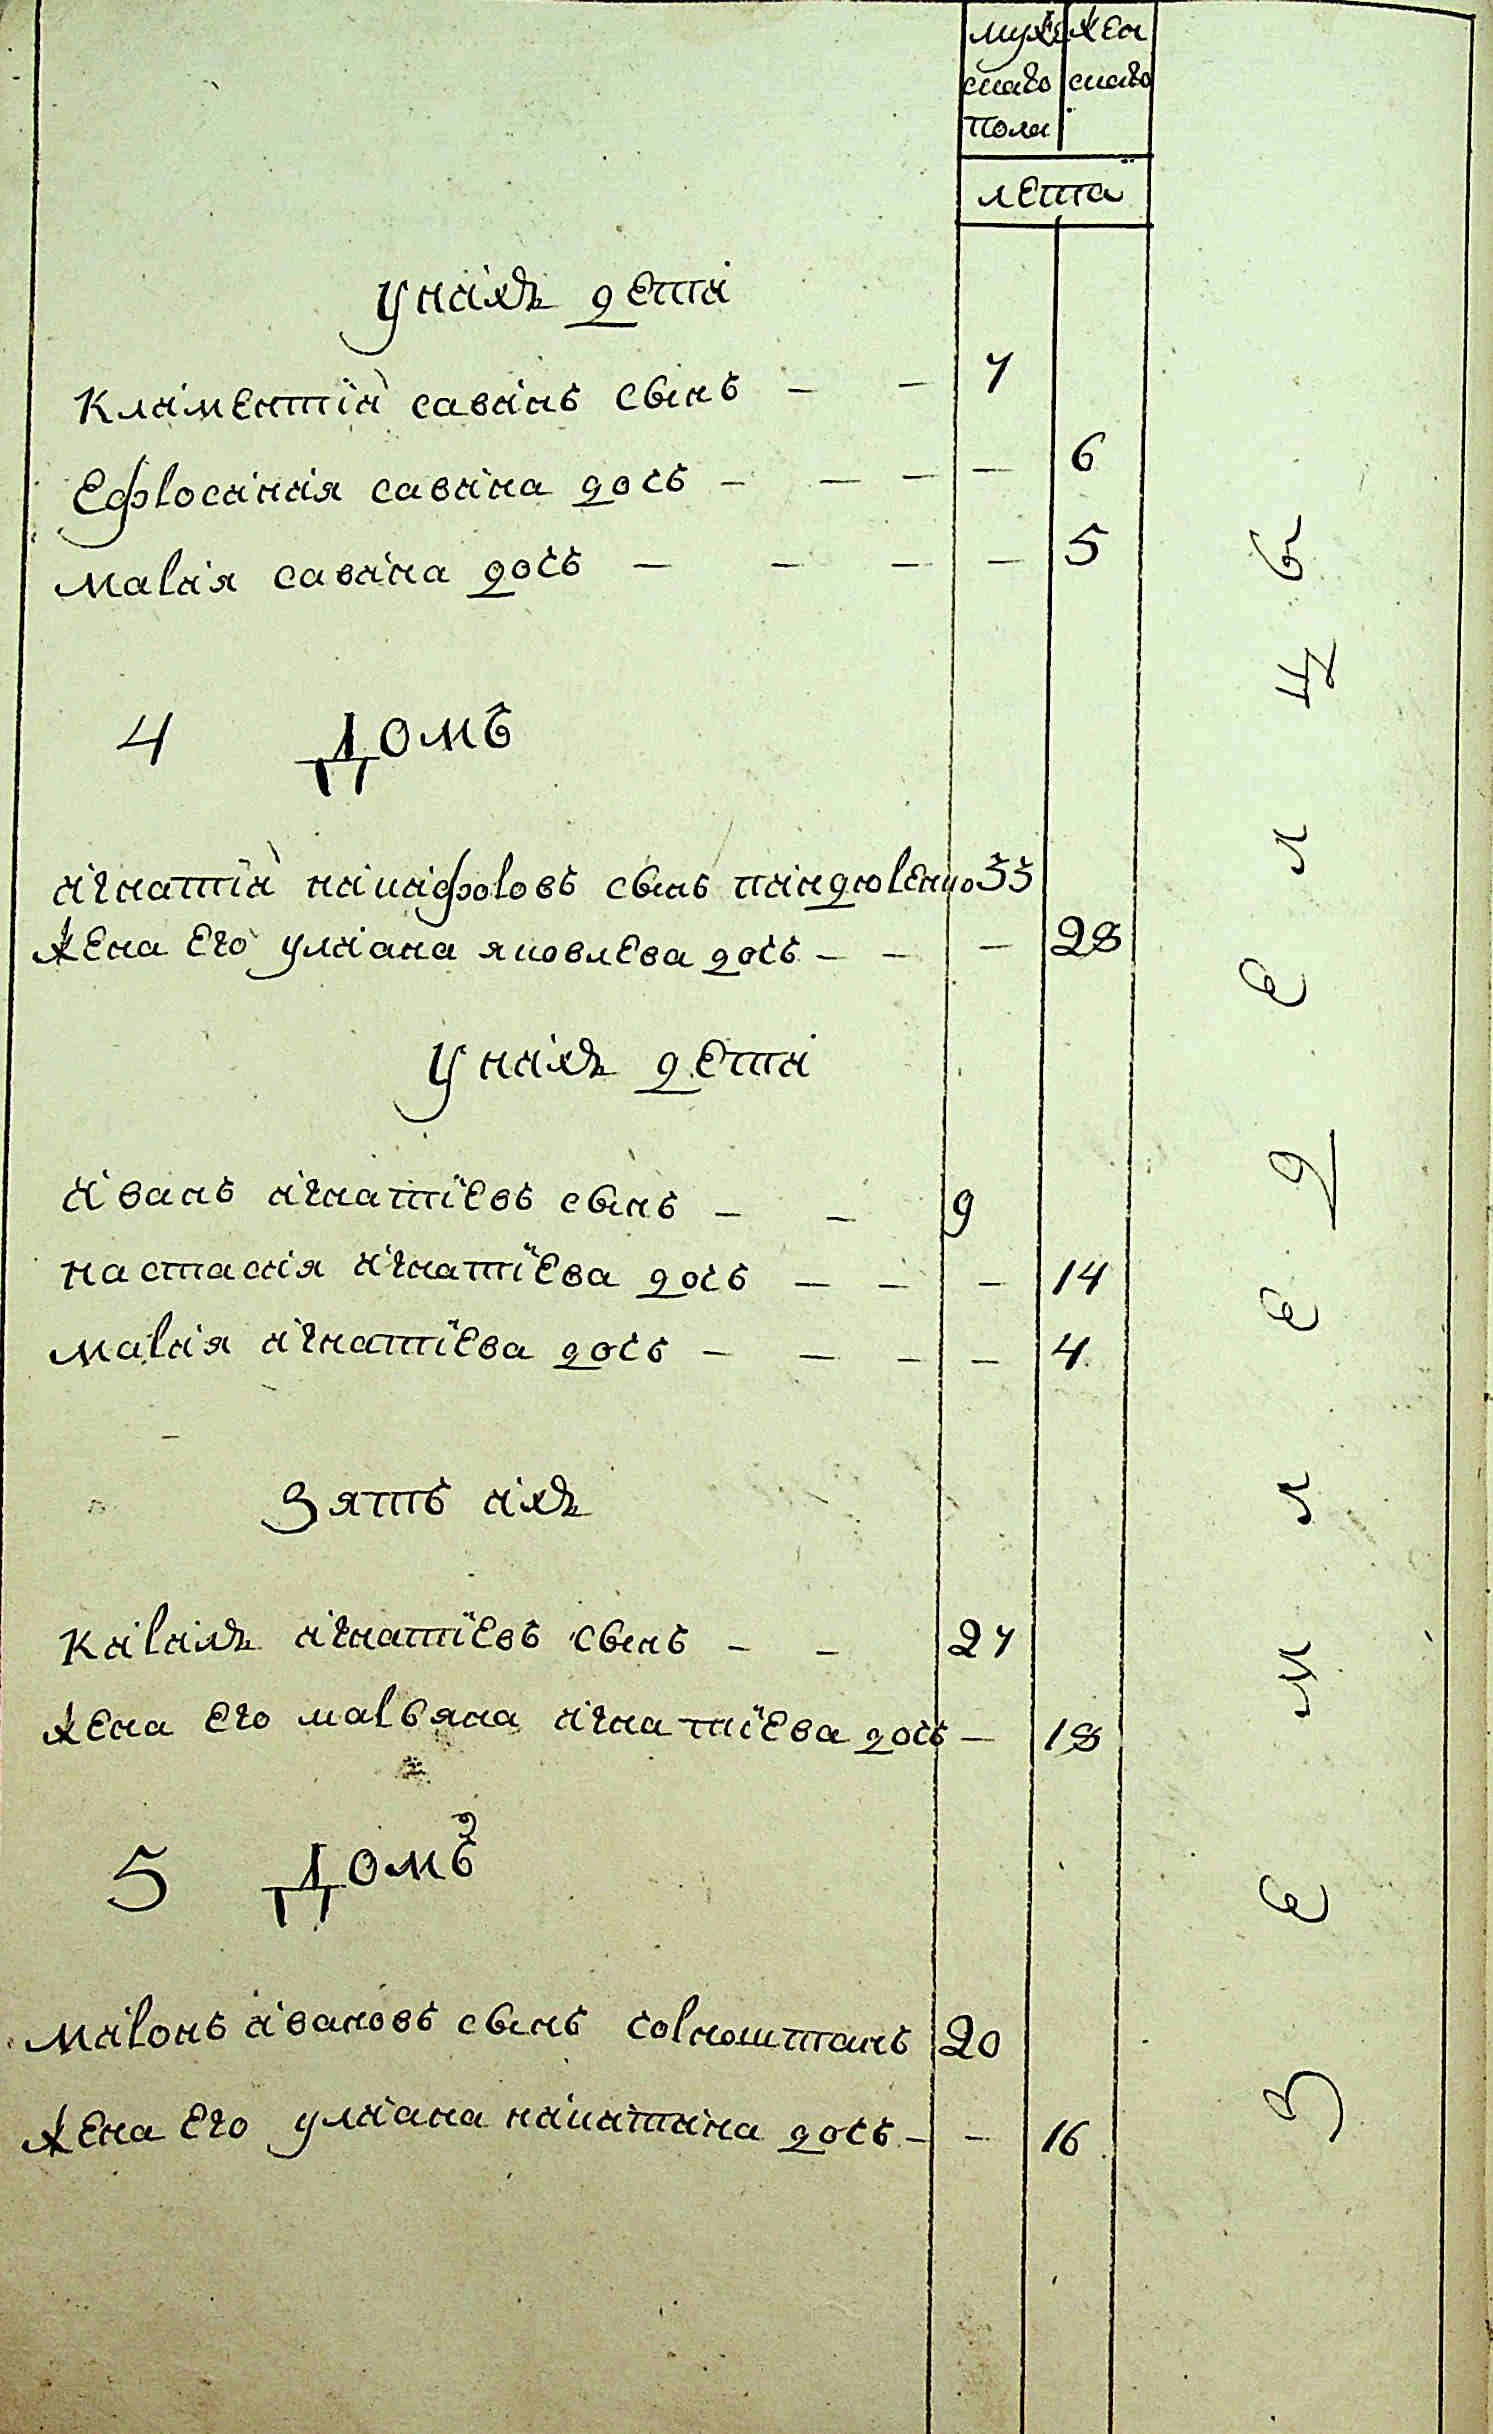 мужε жεн
скаго скаго
пола
лѣта
У нихъ дети
Климентій савинъ сынъ — — 7
Ефросинія савина дочь — — — — 6
Марія савина дочь — — — — 5
4 Домъ
Игнатій никифоровъ сынъ пандюренко 33
Жена его улиана яковлева дочь — — — 28
У нихъ дети
Иванъ игнатіевъ сынъ — — 9
Настасия игнатіева дочь — — — 14
Марія игнатіева дочь — — — — 4
Зять ихъ
Кирилъ игнатіевъ сынъ — — 27
Жена его маръяна игнатіева дочь — 18
5 Домъ
Миронъ ивановъ сынъ чорноштанъ 20
Жена его улиана никитина дочь — — 16
Земледелцы